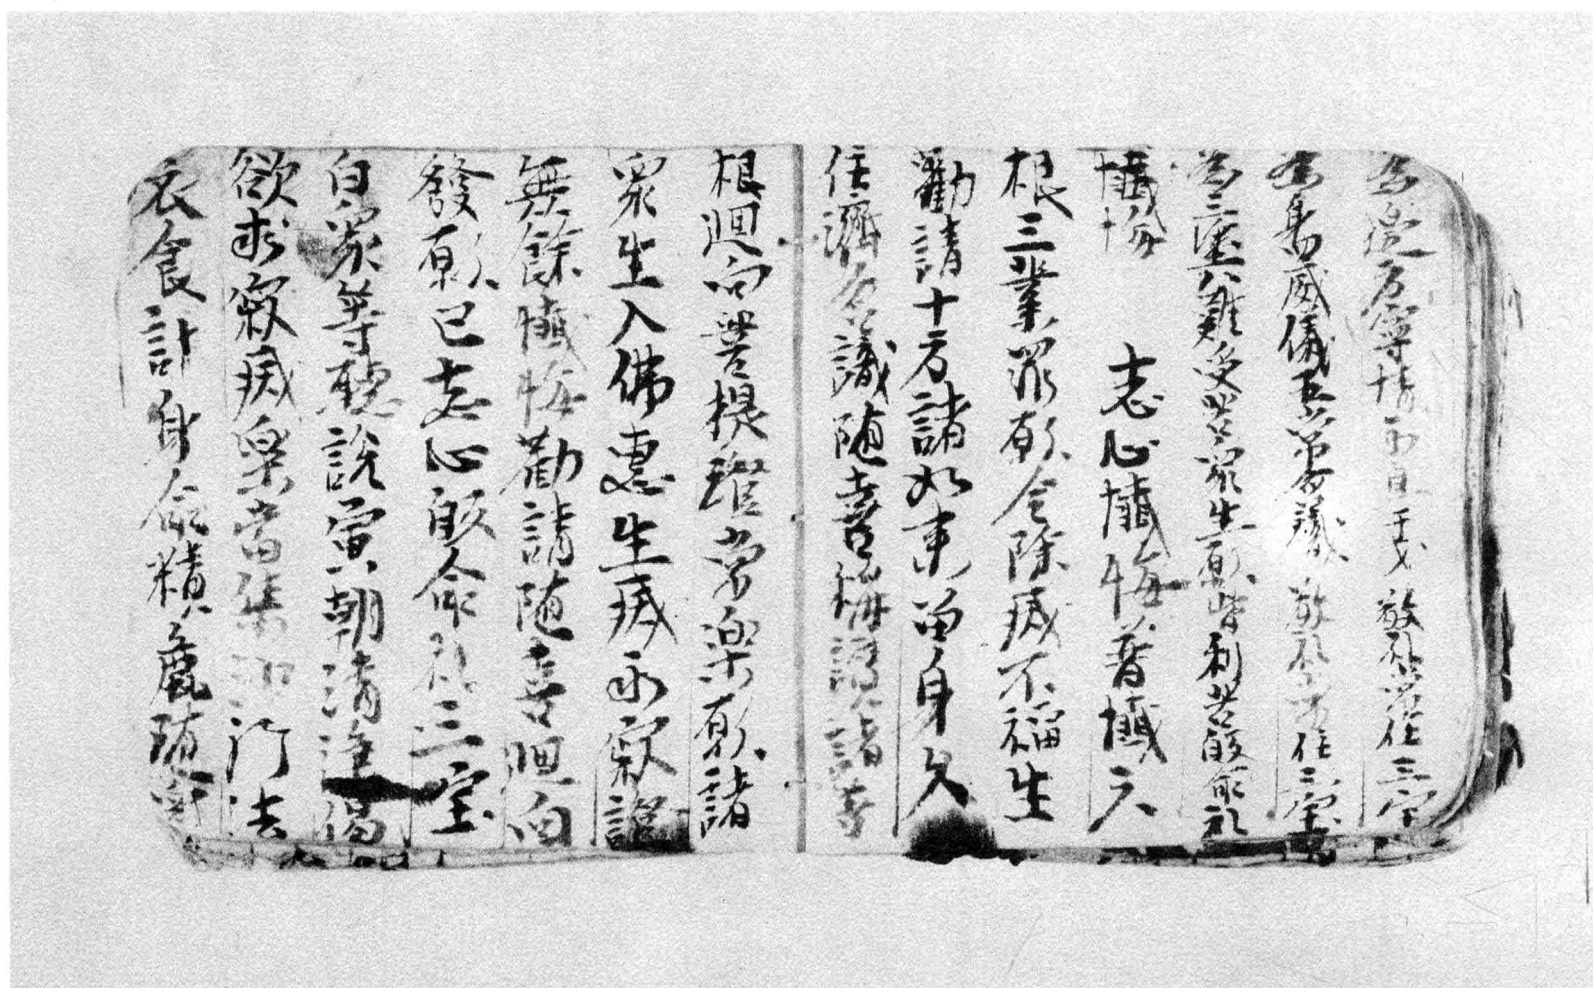 為邊方寧靜 敬礼常住三宝
為暮威儀五 敬礼常住三宝
為三塗八難受苦眾生願皆利苦皈命礼
懺悔 志心懺悔普懺六
根三業罪願令除滅不福生
勸請十方諸如来留身久
住濟含識随喜稱讚諸善
根迴向菩提證常楽願諸
眾生入佛惠生滅永寂證
無餘懺悔勸請随喜迴向
發願已志心皈命礼三宝
白眾等聽說寅朝清淨偈
欲求寂滅樂當學沙門法
衣食計身命積麁随眾